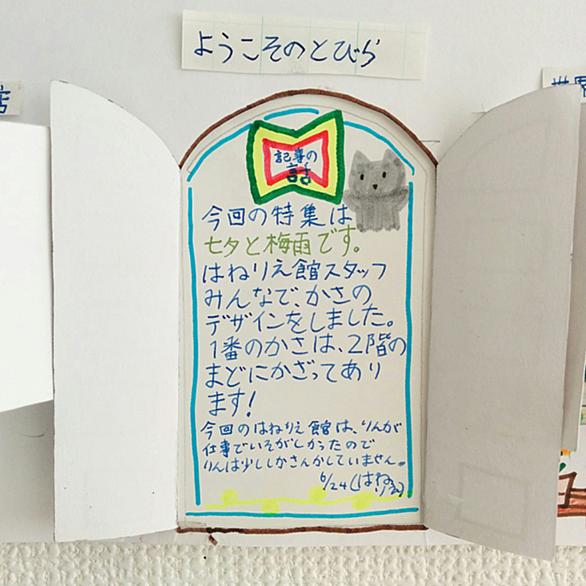 ようこそのとびら
店
世界
記事の
話
今回の特集は
七夕と梅雨です。
はねりえ館スタッフ
みんなで、かさの
デザインをしました。
1番のかさは、2階の
まどにかざってあり
ます!
今回のはねりえ館は、りんが
仕事でいそがしかったので
りんは少ししかさんかしていません。
6/24(はね